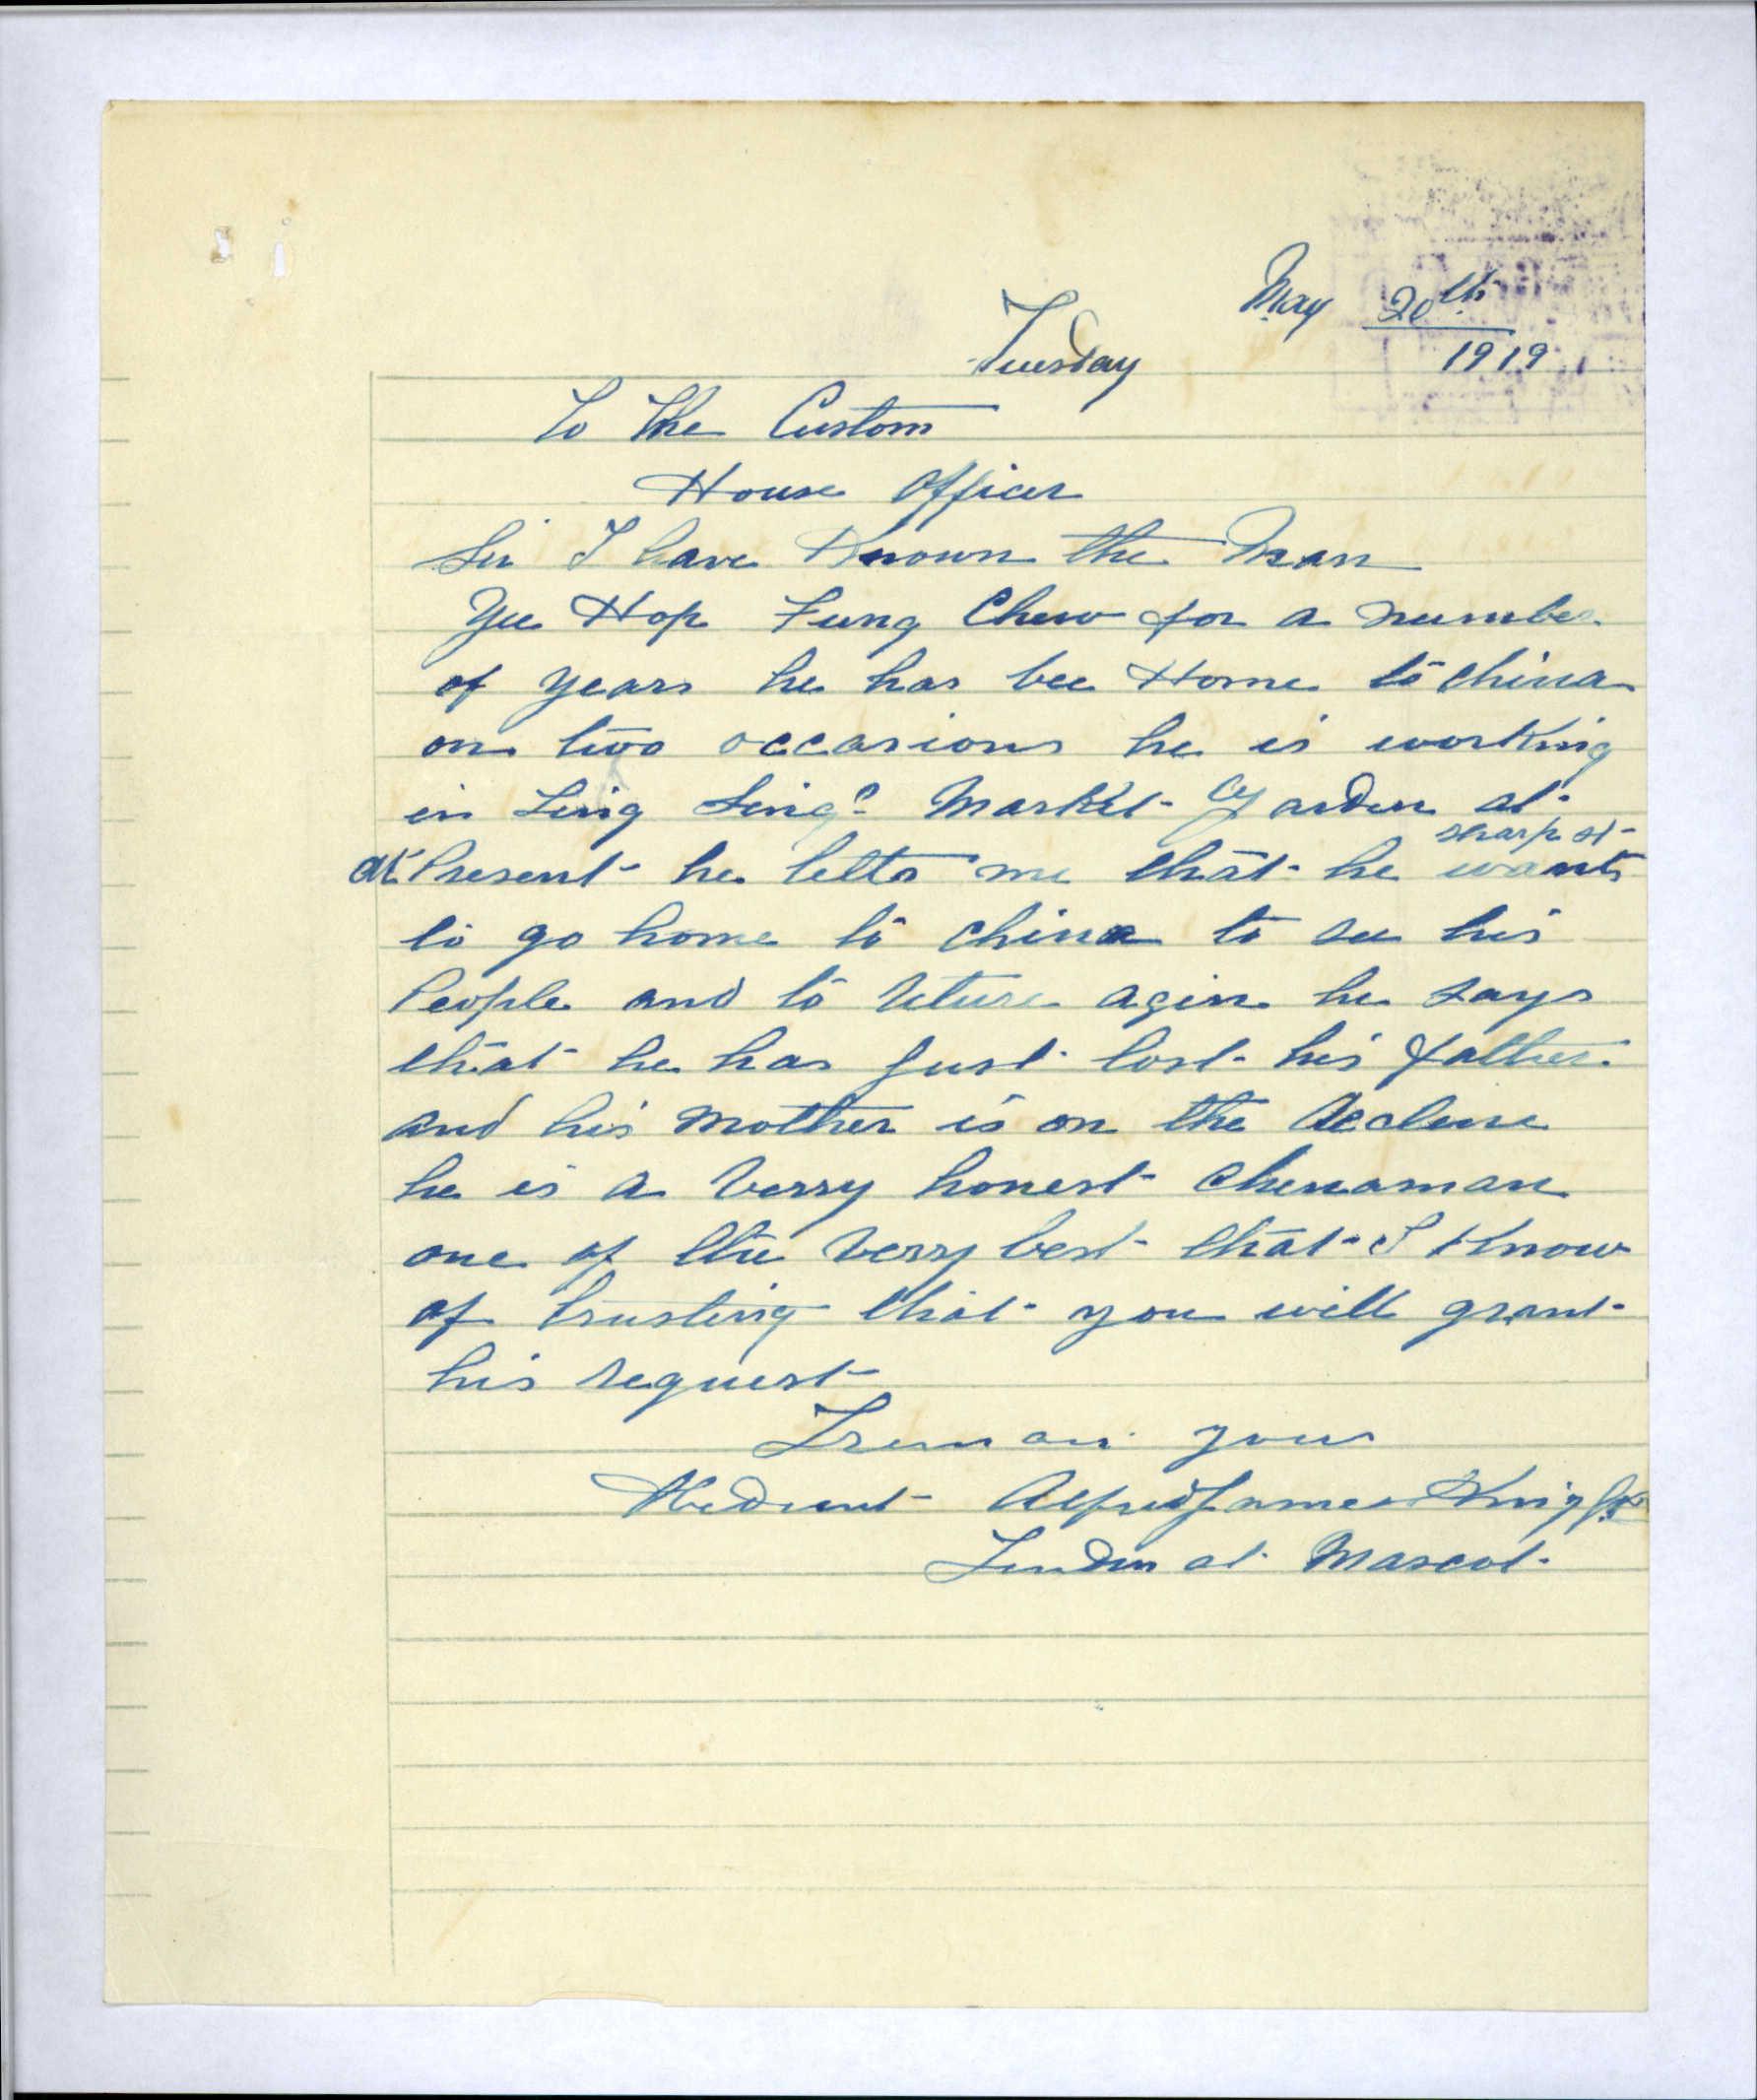 May 20th
Tuesday 1919
To The Custom
House Officer
Sir I have Known the Man
Yee Hop Fung Chew for a number
of years he has bee Home to china
on two occasions he is working
in Sing Sings Market Garden at
sharp st
at Present he tells me that he wants
to go home to china to see his
People and to return agin he says
that he has Just lost his father
and his mother is on the decline
he is a verry honest chinaman
one of the verry best that I Know
of trusting that you will grant
his request
I remain your
Obedient Alfred James Knight
at Mascot